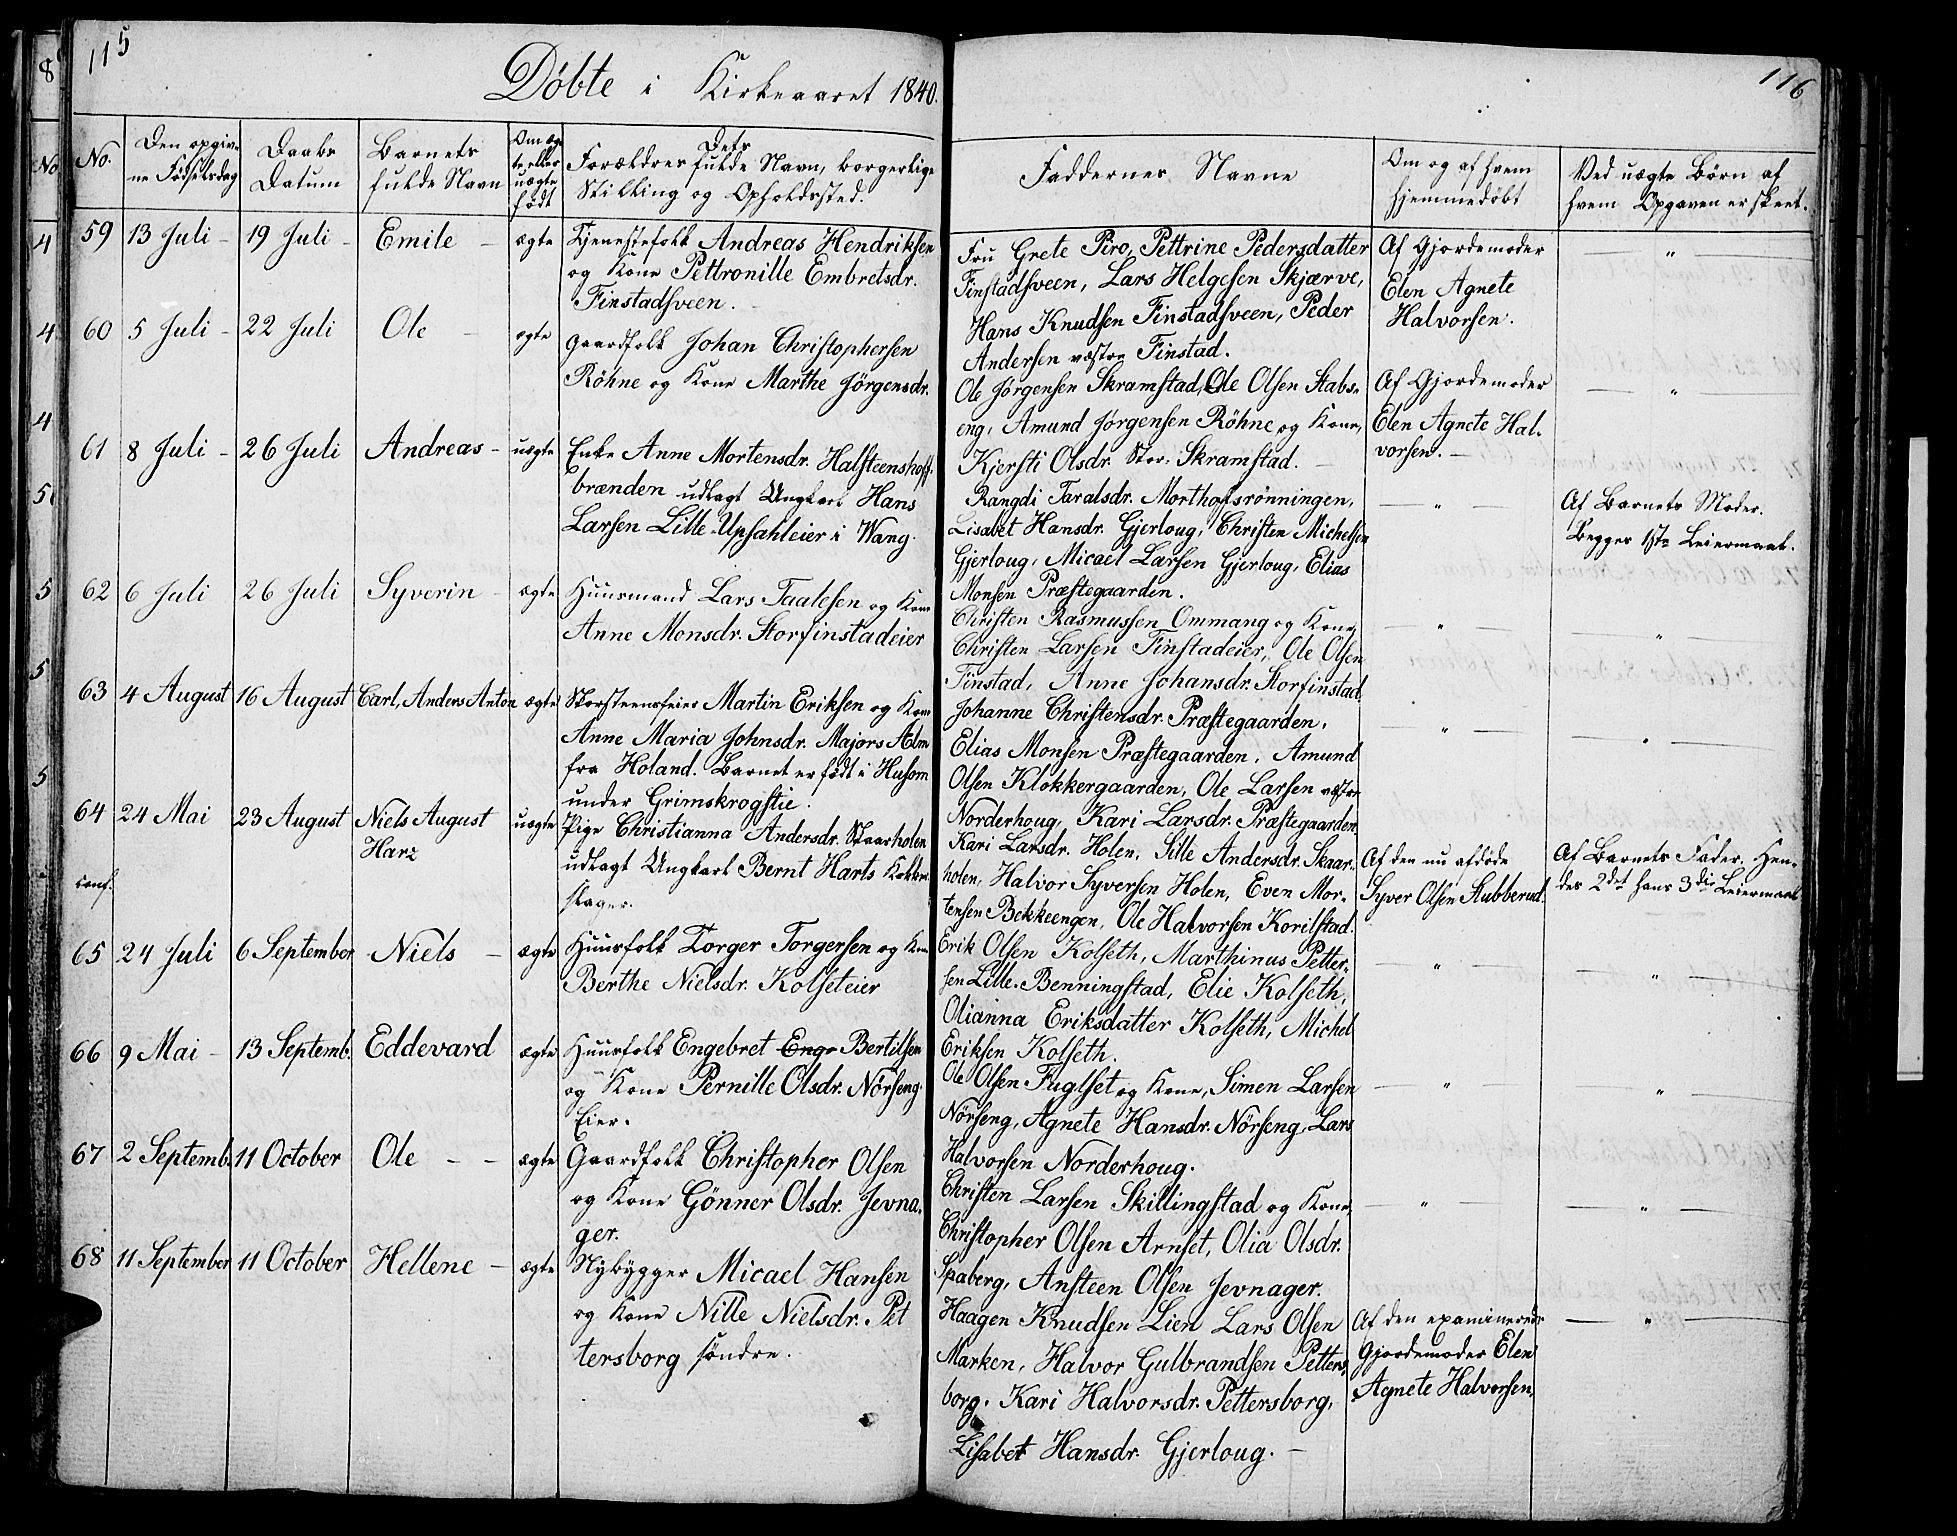 115
Döbte i Kirkeaaret 1840.
No.
Den opgivne Fødselsdag
Daabs Datum
Barnets fulde Navn
Om ægte eller uægte født
Forældres Dets fulde Navn, borgerlige Stilling og Opholdssted.
59 13 Juli - 19 Juli - Emile - ægte Tjenestefolk Andreas Hendriksen
og Kone Pettronille Embretsdr.
Finstadsveen.
60 5 Juli - 22 Juli Ole - ægte Gaardfolk Johan Christophersen
Röhne og Kone Marthe Jörgensdr.
61 8 Juli - 26 Juli Andreas - uægte Enke Anne Mortensdr. Halsteenshoff-
brænden udlagt Ungkarl Hans
Larsen Lille-Upsahleier i Wang.
62 6 Juli 26 Juli Syverin - ægte Huusmand Lars Taalesen og Kone
Anne Monsdr. Storfinstadeier
63 4 August 16 August Carl, Anders Anton ægte Skorsteensfeier Martin Eriksen og Kone
Anne Maria Johnsdr. Majors Alm
fra Holand. Barnet er født i Husom
under Grimskrogstie.
64 24 Mai 23 August Niels August uægte Pige Christianna Andersdr. Skaarholen
Harz
udlagt Ungkarl Bernt Harts Kakkel-
conf.
slager.
65 24 Juli 6 September Niels - ægte Huusfolk Torger Torgersen og Kone
Berthe Nielsdr. Kolseteier
66 9 Mai - 13 Septemb. Eddevard ægte Huusfolk Engebret Enge Bertilsen
og Kone Pernille Olsdr. Nörseng-
Eier.
67 2 Septemb. 11 October Ole - - ægte Gaardfolk Christopher Olsen
og Kone Gönner Olsdr. Jevna-
ger.
68 11 September 11 October Hellene - ægte Nybygger Micael Hansen
og Kone Nille Nielsdr. Pet
tersborg söndre.
116
Faddernes Navne
Om og af hvem hjemmedøbt
Ved uægte Børn af hvem Opgaven er skeet.
Fru Grete Piro, Pettrine Pedersdatter
Finstadsveen, Lars Helgesen Skjærve,
Hans Knudsen Finstadsveen, Peder
Andersen vestre Finstad.
Af Gjordemoder
Elen Agnete
Halvorsen.
Ole Jørgensen Skramstad, Ole Olsen Stabs-
eng, Amund Jørgensen Röhne og Kone,
Kjersti Olsdr. Stor-Skramstad.
Af Gjordemoder
Elen Agnete Hal-
vorsen.
Rangdi Taralsdr. Morthofsrønningen,
Lisabet Hansdr. Gjerloug, Christen Michelsen
Gjerloug, Micael Larsen Gjerloug, Elias
Monsen Præstegaarden.
Af Barnets Moder.
Begges 1ste Leiermaal.
Christen Rasmussen Ommang og Kone,
Christen Larsen Finstadeier, Ole Olsen
Finstad, Anne Johansdr. Storfinstad.
Johanne Christensdr. Præstegaarden,
Elias Monsen Præstegaarden, Amund
Olsen Klokkergaarden, Ole Larsen vestre
Norderhoug, Kari Larsdr. Præstegaarden.
Kari Larsdr. Holen, Sille Andersdr. Skaar-
holen, Halvor Syversen Holen, Even Mor-
tensen Bekkeengen, Ole Halvorsen Korilstad.
Af den nu afdøde
Syver Olsen Stubberud.
Af Barnets Fader. Hen-
des 2det hans 3die Leiermaal
Erik Olsen Kolseth, Marthinus Petter-
sen Lille-Benningstad, Elie Kolseth,
Olianna Eriksdatter Kolseth, Michel
Eriksen Kolseth.
Ole Olsen Fuglset og Kone, Simen Larsen
Nörseng, Agnete Hansdr. Nörseng, Lars
Halvorsen Norderhoug.
Christen Larsen Skillingstad og Kone,
Christopher Olsen Arnset, Olia Olsdr.
Spaberg, Ansteen Olsen Jevnager.
Haagen Knudsen Lien Lars Olsen
Marken, Halvor Gulbrandsen Petters-
borg, Kari Halvorsdr. Pettersborg,
Lisabet Hansdr. Gjerloug. -
Af den examinerede
Gjordemoder Elen
Agnete Halvorsen.